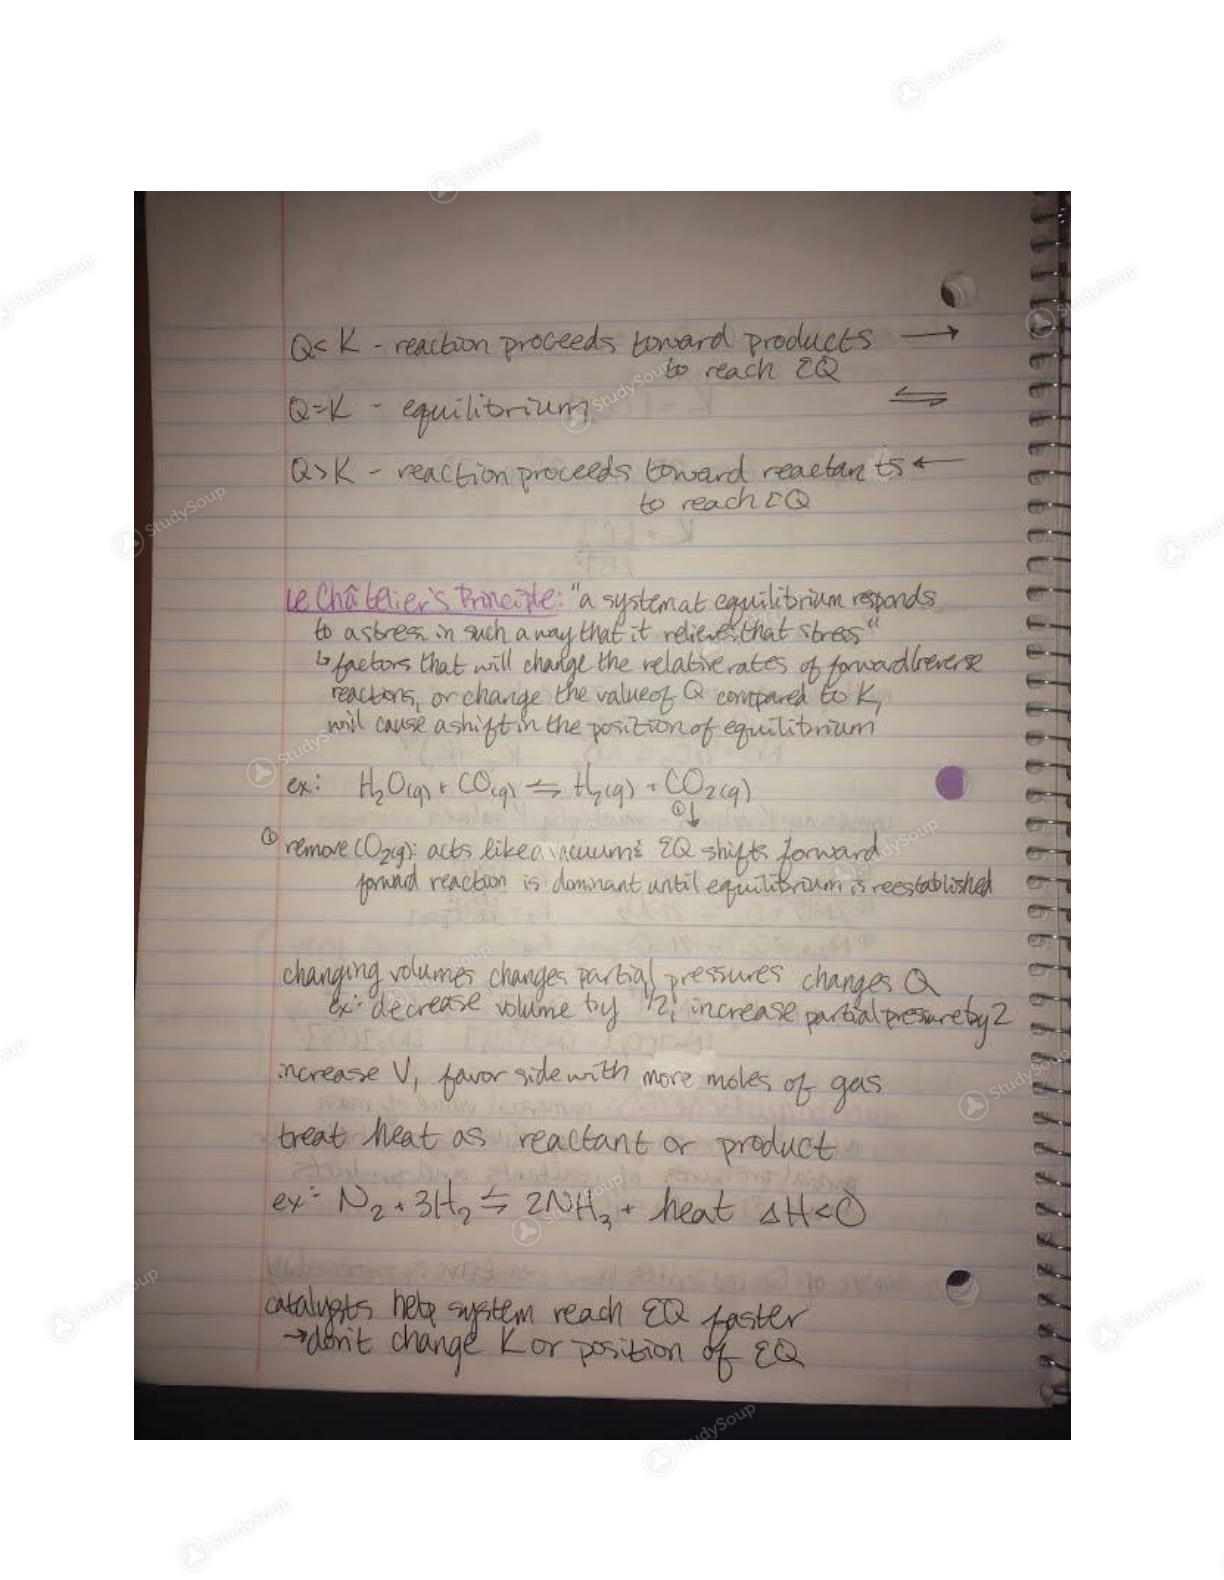 Q<K - reaction proceeds toward products →
to reach EQ
Q=K - equilibrium ⇌
Q>K - reaction proceeds toward reactants ←
to reach EQ
Le Châtelier's Principle: "a system at equilibrium responds
to a stress in such a way that it relieves that stress"
↳ factors that will change the relative rates of forward/reverse
reactions, or change the value of Q compared to K,
will cause a shift in the position of equilibrium
ex: H₂O(g) + CO(g) ⇌ H₂(g) + CO₂(g)
① ↓
① remove CO₂(g): acts like a vacuum & EQ shifts forward
forward reaction is dominant until equilibrium is reestablished
changing volumes changes partial pressures changes Q
ex: decrease volume by 1/2, increase partial pressure by 2
increase V, favor side with more moles of gas
treat heat as reactant or product
ex: N₂ + 3H₂ ⇌ 2NH₃ + heat ΔH<0
catalysts help system reach EQ faster
→ don't change K or position of EQ
StudySoup